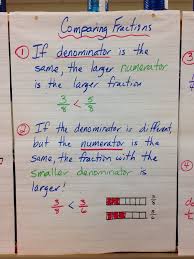 Comparing Fractions
① If denominator is the
same, the larger numerator
is the larger fraction
3/8 < 5/8
② If the denominator is different,
but the numerator is the
same, the fraction with the
smaller denominator is
larger!
3/8 < 3/6
3/8
3/6